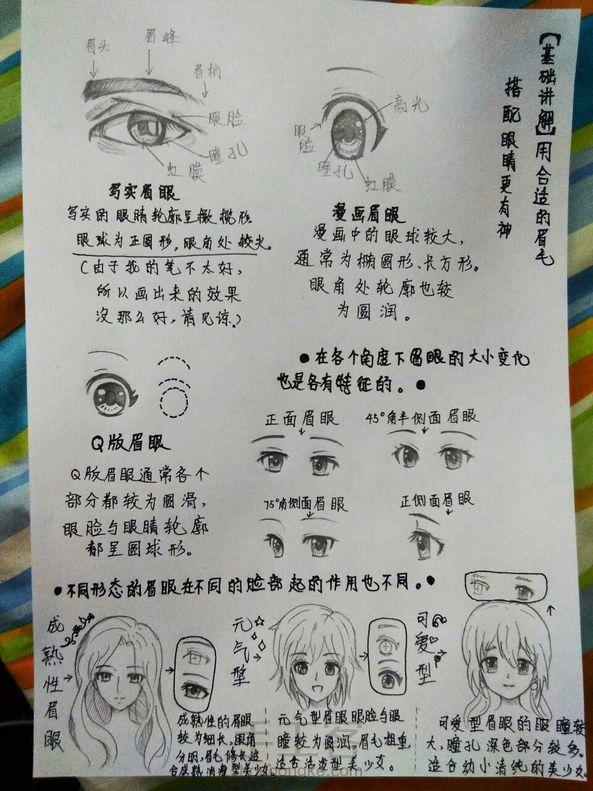 【基础讲解】用合适的眉毛
搭配眼睛更有神
眉头
眉峰
眉梢
眼脸
瞳孔
虹膜
写实眉眼
写实的眼睛轮廓呈橄榄形
眼球为正圆形,眼角处较尖。
(由于我的笔不太好,
所以画出来的效果
没那么好,请见谅。)
高光
眼脸
瞳孔
虹膜
漫画眉眼
漫画中的眼球较大,
通常为椭圆形、长方形。
眼角处轮廓也较
为圆润。
Q版眉眼
Q版眉眼通常各个
部分都较为圆滑,
眼脸与眼睛轮廓
都呈圆球形。
●在各个角度下眉眼的大小变化
也是各有特征的。●
正面眉眼
45°角半侧面眉眼
75°角侧面眉眼
正侧面眉眼
●不同形态的眉眼在不同的脸部起的作用也不同。●
成熟性眉眼
成熟性的眉眼
较为细长,眼角
分明,眉毛修长适
合成熟
型美少女
元气型
元气型眉眼眼脸与眼
瞳较为圆润。眉毛粗重
适合活泼型美少女。
可爱型
可爱型眉眼的眼瞳较
大,瞳孔深色部分较多。
适合幼小清纯的美少女